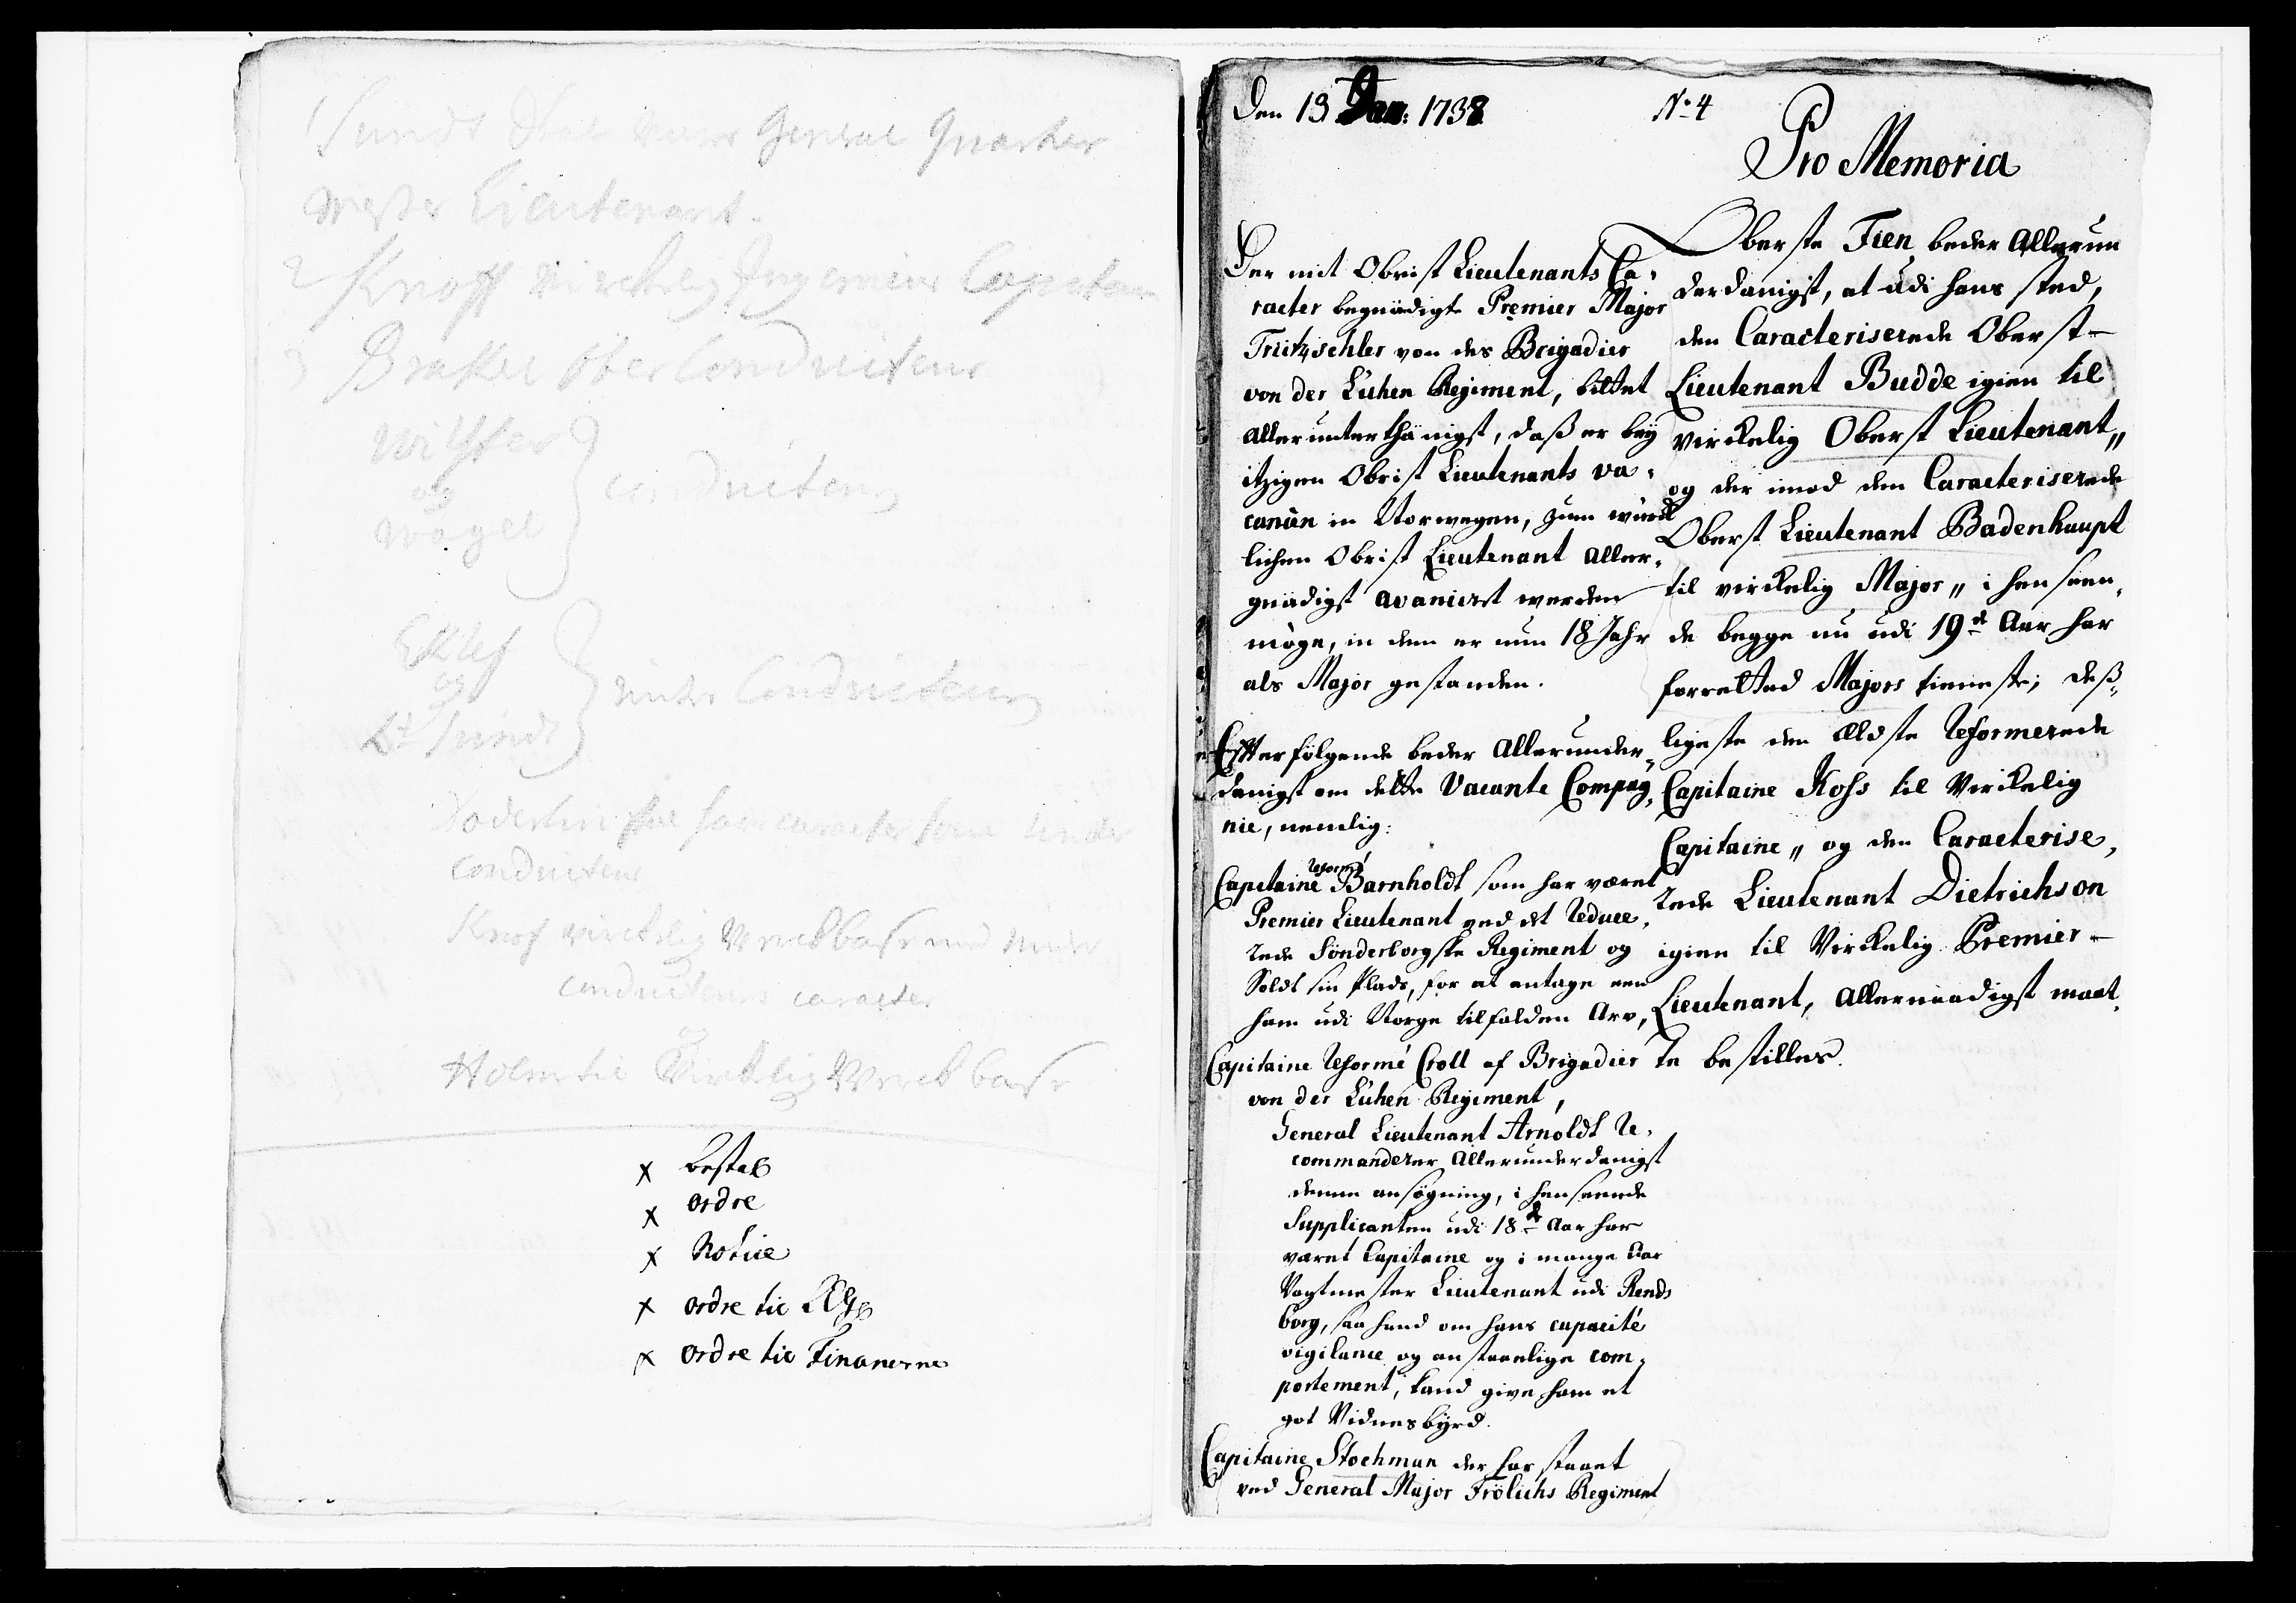 1 Sundt skal være General Quarteer
mester Lieutenant.
2 Knoff virckelig Ingenieur Capitain
3 Braker ober Conducteur
Wilster
og
Wagel
conducteurs
Eklef
og
Lt Sundt
under Conducteurs
som under
conducteur
Knof virckelig
conducteurs caracter
Holm til Virkelig
x bestal
x ordre
x Notice
x ordre til
x ordre til Finanerne
Den 13 Jan: 1738
No 4
Pro Memoria
Der mit Obrist Lieutenants Ca-
racter begnädigte Premier Major
Tritzschler von des Brigadier
von der Lühen Regiment, bittet
allerunterthänigst, daß er bey
itzigen Obrist Lieutenants va-
cancen in Norwegen, zum würck
lichen Obrist Lieutenant aller-
gnädigst avanciert werden
möge, in dem er nun 18 Jahr
als Major gestanden.
Effterfölgende beder allerunder-
danigst om dette vacante Compag-
nie, nemlig:
Capitaine Reformé Barnholdt som har været
Premier Lieutenant ved det Reduce-
rede Sönderborgske Regiment og
Soldt sin Plads, for at antage een
ham udi Norge tilfalden Arv,
Capitaine Reformé Croll af Brigadier
von der Lühen Regiment,
General Lieutenant Arnoldt Re-
commanderer allerunderdanigst
denne ansögning, i henseende
Supplicanten udi 18de Aar har
været Capitaine og i mange Aar
Vagtmester Lieutenant udi Rends
borg, saa hand om hans capacité
vigilance og anstændige com-
portement, kand give ham et
got Vidnesbyrd.
Capitaine Stochman der har staaet
ved General Major Frölichs Regiment
Oberste Fien beder Allerun
derdanigst, at udi hans sted,
den Caracteriserede Oberst-
Lieutenant Budde igien til
virckelig Oberst Lieutenant,,
og der imod den Caracteriserede
Oberst Lieutenant Badenhaupt
til virckelig Major,, i henseen-
de begge nu udi 19de Aar har
forretted Majors tieneste; deß-
ligeste den ældste Reformerede
Capitaine Koss til Virckelig
Capitaine,, og den Caracterise-
rede Lieutenant Dietrichson
igien til Virckelig Premier-
Lieutenant, allernaadigst maat-
te bestilles.